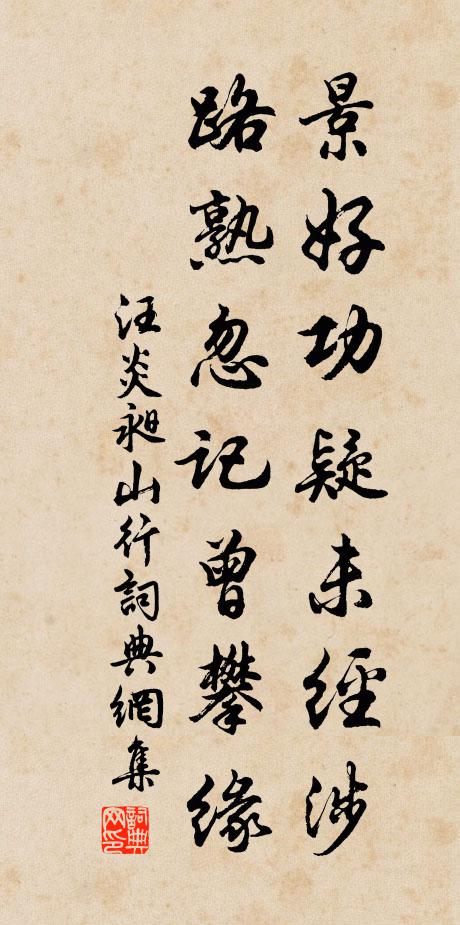 景好功疑未經涉
路熟忽記曾攀緣
汪炎昶山行詞典網集
詞典網印